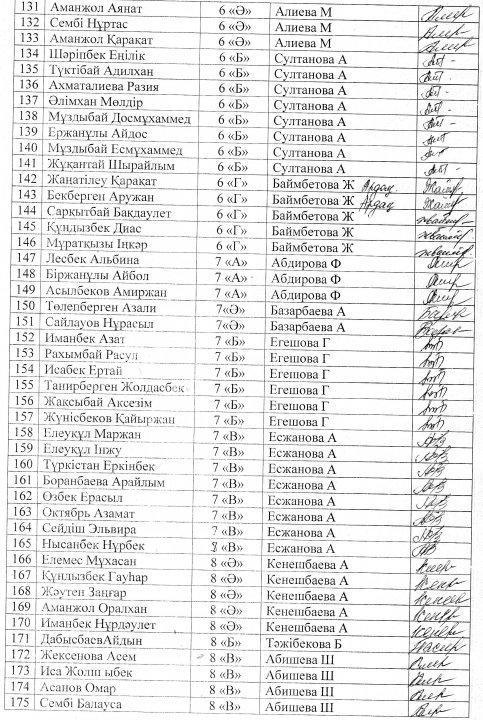 131 Аманжол Аянат 6 «Ә» Алиева М
132 Сембі Нұртас 6 «Ә» Алиева М
133 Аманжол Қарақат 6 «Ә» Алиева М
134 Шәріпбек Еңілік 6 «Б» Султанова А
135 Түктібай Адилхан 6 «Б» Султанова А
136 Ахматалиева Разия 6 «Б» Султанова А
137 Әлімхан Мөлдір 6 «Б» Султанова А
138 Мұздыбай Досмұхаммед 6 «Б» Султанова А
139 Ержанұлы Айдос 6 «Б» Султанова А
140 Мұздыбай Есмұхаммед 6 «Б» Султанова А
141 Жұкантай Шырайлым 6 «Б» Султанова А
142 Жаңатілеу Қарақат 6 «Г» Баймбетова Ж
143 Бекберген Аружан 6 «Г» Баймбетова Ж
144 Саркытбай Бақдаулет 6 «Г» Баймбетова Ж
145 Құндызбек Диас 6 «Г» Баймбетова Ж
146 Мұратқызы Іңкәр 6 «Г» Баймбетова Ж
147 Лесбек Альбина 7 «А» Абдирова Ф
148 Біржанұлы Айбол 7 «А» Абдирова Ф
149 Асылбеков Амиржан 7 «А» Абдирова Ф
150 Төлепберген Азали 7«Ә» Базарбаева А
151 Сайлауов Нұрасыл 7«Ә» Базарбаева А
152 Иманбек Азат 7 «Б» Егешова Г
153 Рахымбай Расул 7 «Б» Егешова Г
154 Исабек Ертай 7 «Б» Егешова Г
155 Танирберген Жолдасбек 7 «Б» Егешова Г
156 Жақсыбай Аксезім 7 «Б» Егешова Г
157 Жүнісбеков Қайыржан 7 «Б» Егешова Г
158 Елеуқұл Маржан 7 «В» Есжанова А
159 Елеуқұл Інжу 7 «В» Есжанова А
160 Түркістан Еркінбек 7 «В» Есжанова А
161 Боранбаева Арайлым 7 «В» Есжанова А
162 Озбек Ерасыл 7 «В» Есжанова А
163 Октябрь Азамат 7 «В» Есжанова А
164 Сейдіш Эльвира 7 «В» Есжанова А
165 Нысанбек Нұрбек «В» Есжанова А
166 Елемес Мұхасан 8 «Ә» Кенешбаева А
167 Құндызбек Гауһар 8 «Ә» Кенешбаева А
168 Жәутен Заңғар 8 «Ә» Кенешбаева А
169 Аманжол Оралхан 8 «Ә» Кенешбаева А
170 Иманбек Нұрдәулет 8 «Ә» Кенешбаева А
171 ДабысбаевАйдын 8 «Б» Тәжібекова Б
172 Жексенова Асем 8 «В» Абишева Ш
173 Иса 8 «В» Абишева Ш
174 Асанов Омар 8 «В» Абишева Ш
175 Сембі Балауса 8 «В» Абишева Ш